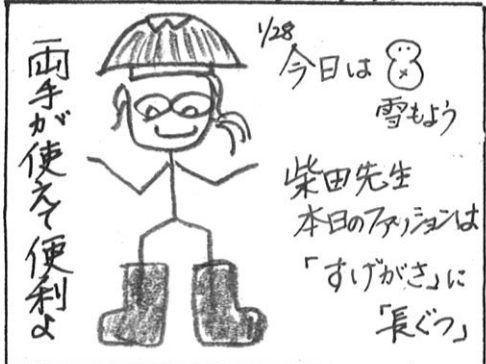 1/28
今日は
雪もよう
柴田先生
本日のファッションは
「すげがさ」に
「長ぐつ」
両手が使えて便利よ